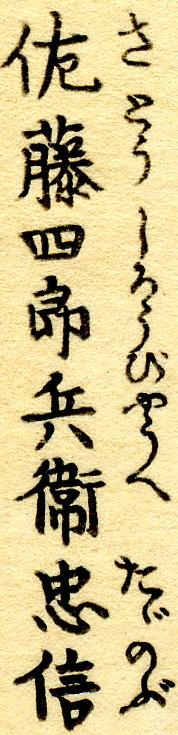 佐藤四郎兵衛忠信
さとうしろうびやうへ たゞのぶ